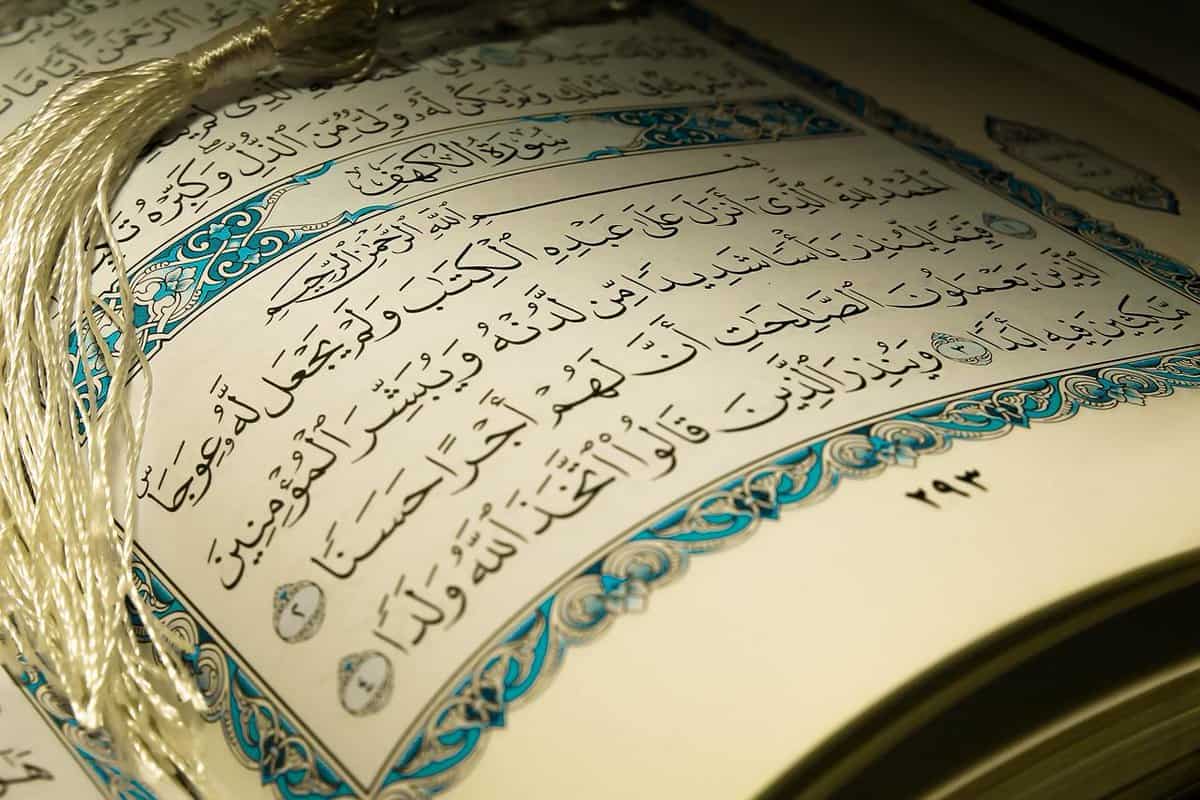 ٱلرَّحْمَٰنَ أَيًّا مَّا
وَقُلِ ٱلْحَمْدُ لِلَّهِ ٱلَّذِى
ٱلْمُلْكِ وَلَمْ يَكُن لَّهُۥ وَلِىٌّ مِّنَ ٱلذُّلِّ وَكَبِّرْهُ
سُورَةُ الكَهْفِ
بِسْمِ ٱللَّهِ ٱلرَّحْمَٰنِ ٱلرَّحِيمِ
ٱلْحَمْدُ لِلَّهِ ٱلَّذِىٓ أَنزَلَ عَلَىٰ عَبْدِهِ ٱلْكِتَٰبَ وَلَمْ يَجْعَل لَّهُۥ عِوَجَا ۜ
١ قَيِّمًا لِّيُنذِرَ بَأْسًا شَدِيدًا مِّن لَّدُنْهُ وَيُبَشِّرَ ٱلْمُؤْمِنِينَ
ٱلَّذِينَ يَعْمَلُونَ ٱلصَّٰلِحَٰتِ أَنَّ لَهُمْ أَجْرًا حَسَنًا ٢
مَّٰكِثِينَ فِيهِ أَبَدًا ٣ وَيُنذِرَ ٱلَّذِينَ قَالُوا۟ ٱتَّخَذَ ٱللَّهُ وَلَدًا ٤
٢٩٣